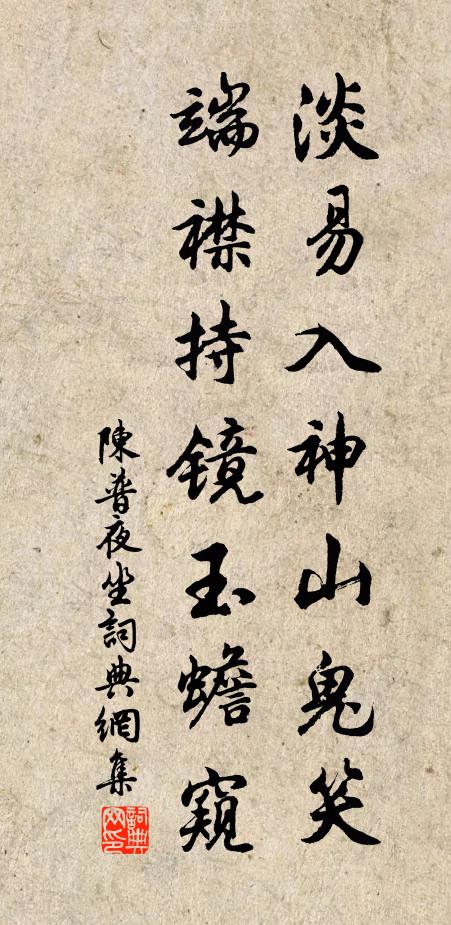 淡易入神山鬼笑
端襟持镜玉蟾窺
陳普夜坐詞典網集
詞典网印